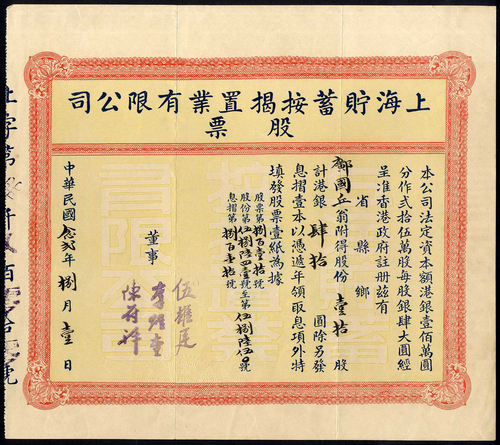 上海貯蓄按揭置業有限公司
股票
本公司法定資本額港銀壹佰萬圓
分作弍拾伍萬股每股銀肆大圓經
呈准香港政府註册茲有
省 縣 鄉
鄺國丘翁附得股份壹拾股
計港銀肆拾圓除另發
息摺壹本以憑遞年領取息項外特
填發股票壹紙為據
股票第捌百壹拾號
股份第伍捌陸四壹號至第伍捌陸伍〇號
息摺第捌百壹拾號
董事
伍耀廷
中華民國念弍年捌月壹日